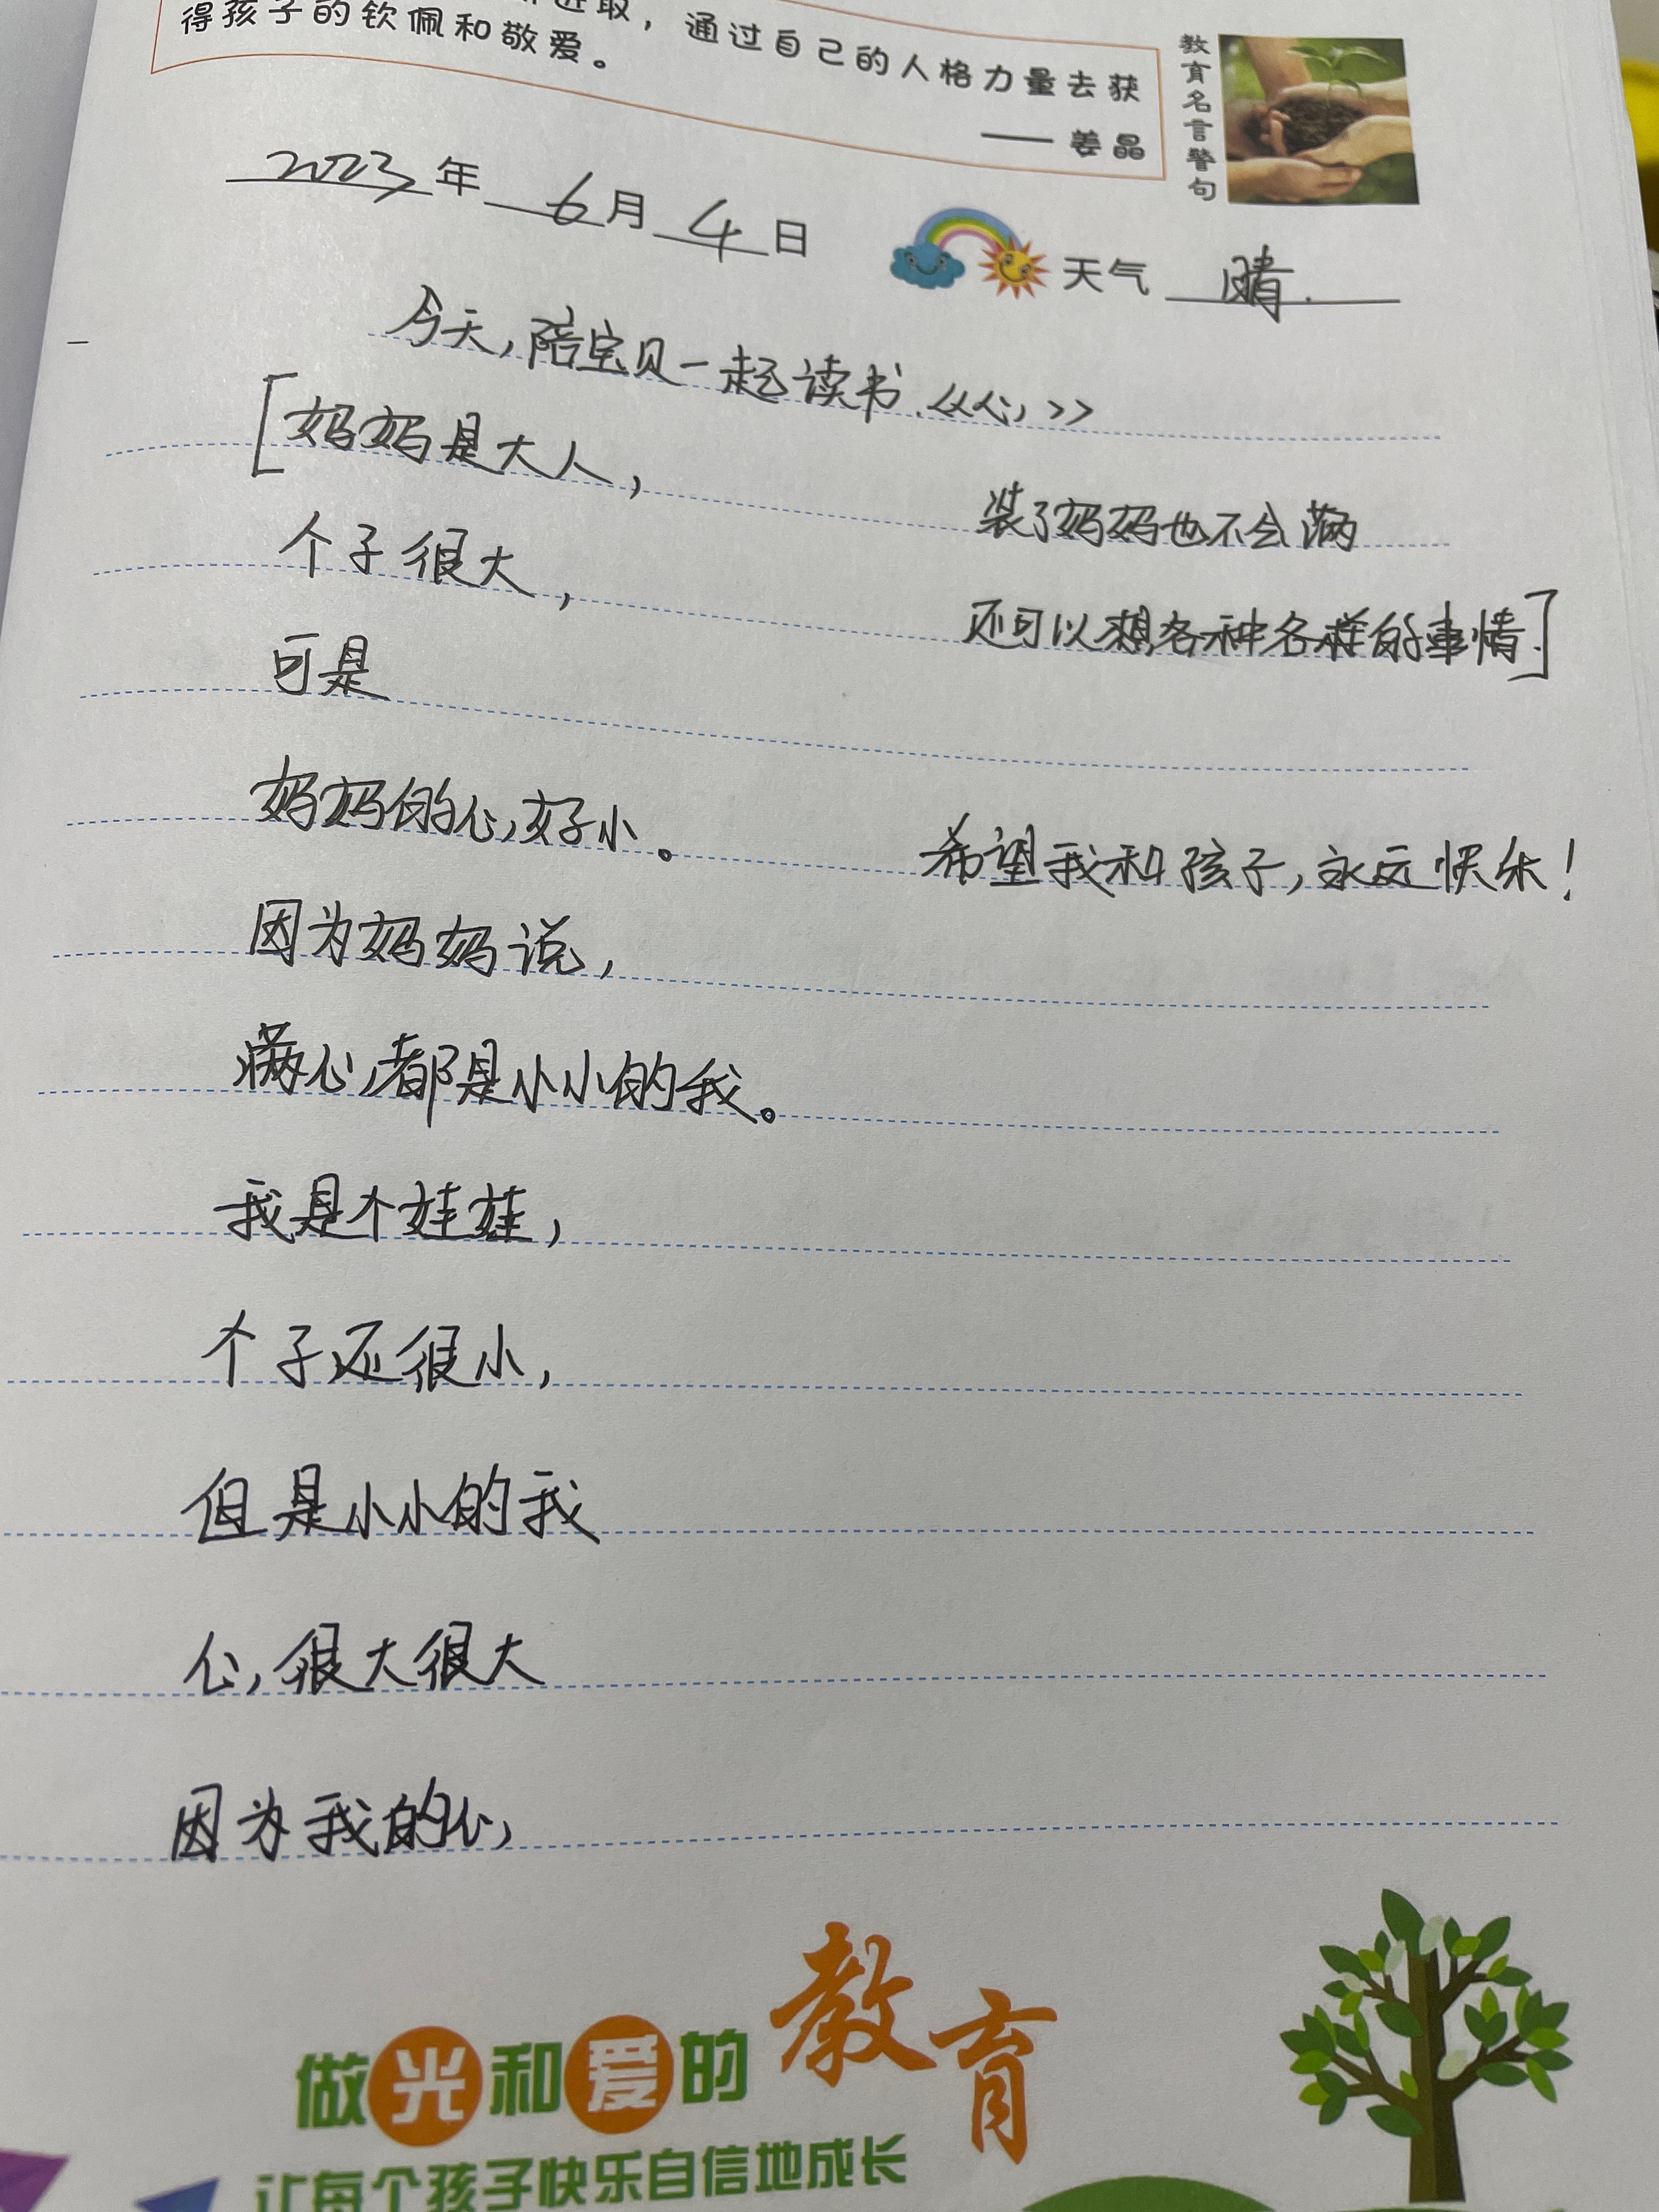 进取，通过自己的人格力量去获
得孩子的钦佩和敬爱。
—— 姜晶
教育名言警句
2023年 6月 4日
天气 晴.
今天,陪宝贝一起读书.《心》
[妈妈是大人，
个子很大，
可是
妈妈的心好小。
因为妈妈说，
满心都是小小的我。
我是个娃娃，
个子还很小，
但是小小的我
心很大很大
因为我的心
装了妈妈也不会满
还可以想各种各样的事情.]
希望我和孩子,永远快乐！
做光和爱的教育
让每个孩子快乐自信地成长